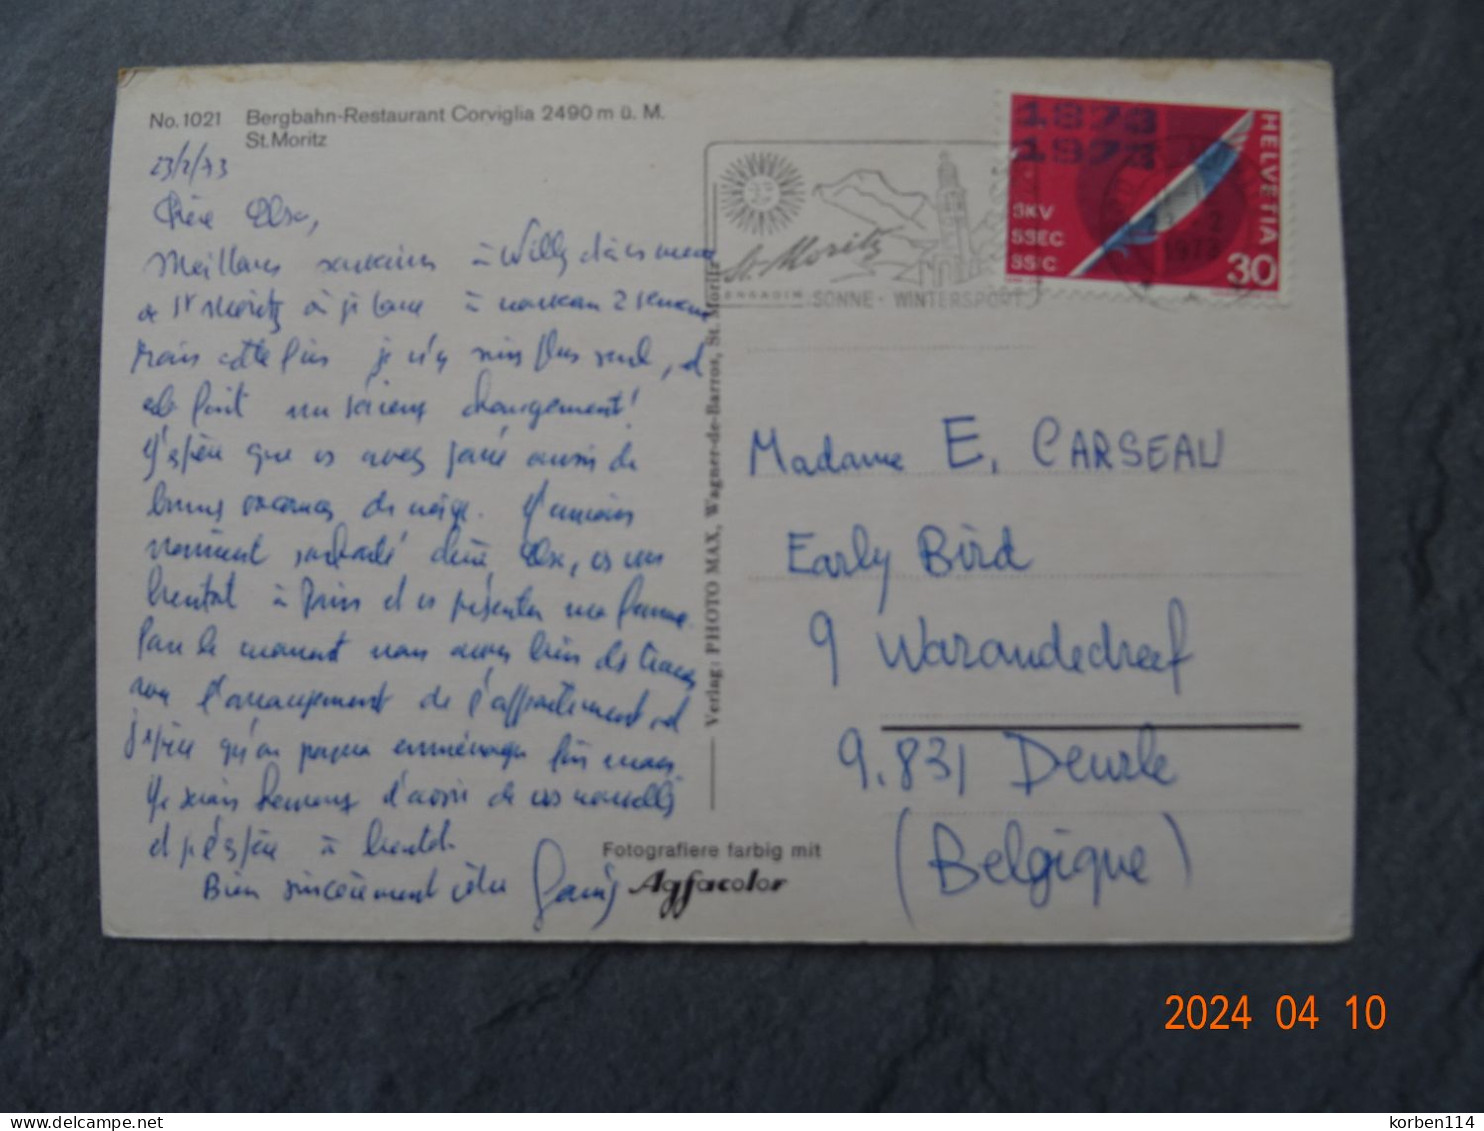 No. 1021 Bergbahn-Restaurant Corviglia 2490 m ü. M.
St. Moritz
23/2/73
Chère Else,
Meilleurs souvenirs à Willy
de St Moritz à nouveau 2
Mais cette fois je n'y suis plus seul, et
fait un sérieux changement!
J'espère que vs avez aussi de
bonnes vacances de neige. J'aimerais
vraiment chère Else, vs
bientôt à Paris et vs présenter ma femme.
Pour le moment nous avons bien des travaux
l'arrangement de l'appartement et
j'espère qu'on pourra emménager fin mars
Je serais heureux d'avoir de vos nouvelles
et j'espère à bientôt.
Bien sincèrement vôtre
Verlag: PHOTO MAX, Wagner-de-Barros, St. Moritz
Fotografiere farbig mit
Agfacolor
St. Moritz
ENGADIN SONNE · WINTERSPORT
1873
1973
SKV
SSEC
SSIC
HELVETIA
30
Madame E. CARSEAU
Early Bird
9 Warandedreef
9.831 Deurle
(Belgique)
2024 04 10
korben114